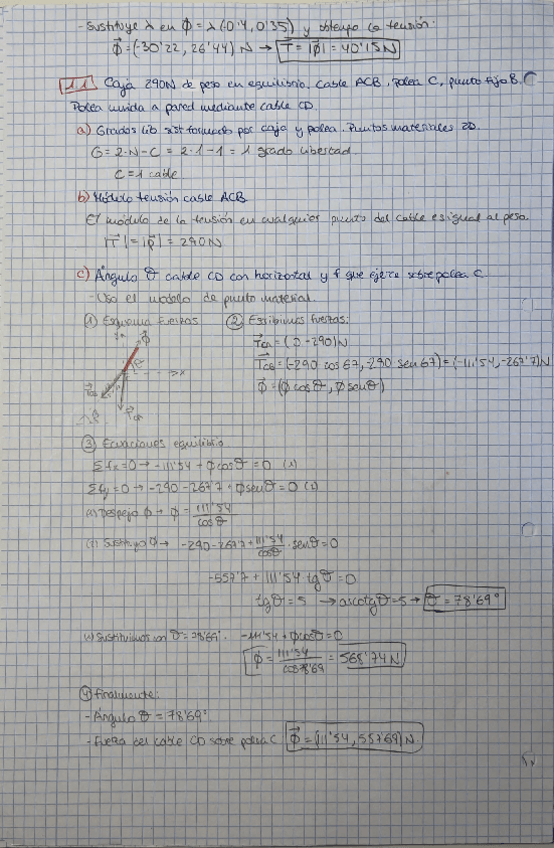 - Sustituye λ en Φ = λ(0'4, 0'35) y obtengo la tensión:
Φ⃗ = (-30'22, 26'44) N → T⃗ = |Φ| = 40'15 N
11 Caja 290N de peso en equilibrio. Cable ACB, polea C, punto fijo B.
Polea unida a pared mediante cable CD.
a) Grados lib sist formado por caja y polea. Puntos materiales 2D.
G = 2·N - C = 2·1 - 1 = 1 grado libertad
C = 1 cable
b) Módulo tensión cable ACB
El módulo de la tensión en cualquier punto del cable es igual al peso.
|T⃗| = |p⃗| = 290N
c) Ángulo θ cable CD con horizontal y f que ejerce sobre polea C.
- Uso el modelo de punto material.
① Esquema fuerzas ② Escribimos fuerzas:
T⃗CA = (0, -290)N
T⃗CB = (-290 cos 67, -290 sen 67) = (-111'54, -267'7)N
Φ⃗ = (Φ cos θ, Φ sen θ)
③ Ecuaciones equilibrio
Σfx = 0 → -111'54 + Φ cos θ = 0 (1)
Σfy = 0 → -290 - 267'7 + Φ sen θ = 0 (2)
Despejo Φ → Φ = 111'54 / cos θ
Sustituyo Φ → -290 - 267'7 + 111'54 / cos θ · sen θ = 0
-557'7 + 111'54 · tg θ = 0
tg θ = 5 → arcotg θ = 5 → θ = 78'69°
Sustituimos con θ = 78'69°. -111'54 + Φ cos θ = 0
Φ = 111'54 / cos 78'69 = 568'74 N
④ Finalmente:
- Ángulo θ = 78'69°.
- Fuerza del cable CD sobre polea C Φ⃗ = (111'54, 557'69) N